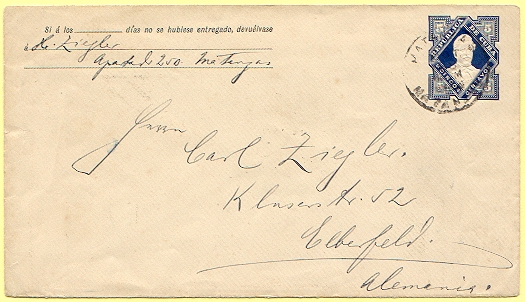 Si á los ______ días no se hubiese entregado, devuélvase
á Hr. Ziegler
Apartado 250. Matanzas
REPUBLICA DE CUBA
5 5
CINCO CENTAVOS
5 5
MATANZAS
Herrn
Carl Ziegler.
Kluserstr. 52
Elberfeld.
Alemania.